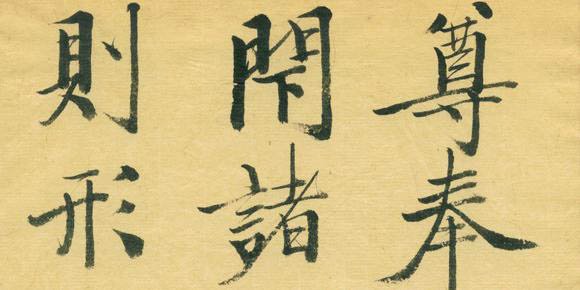 尊奉
閇諸
則形